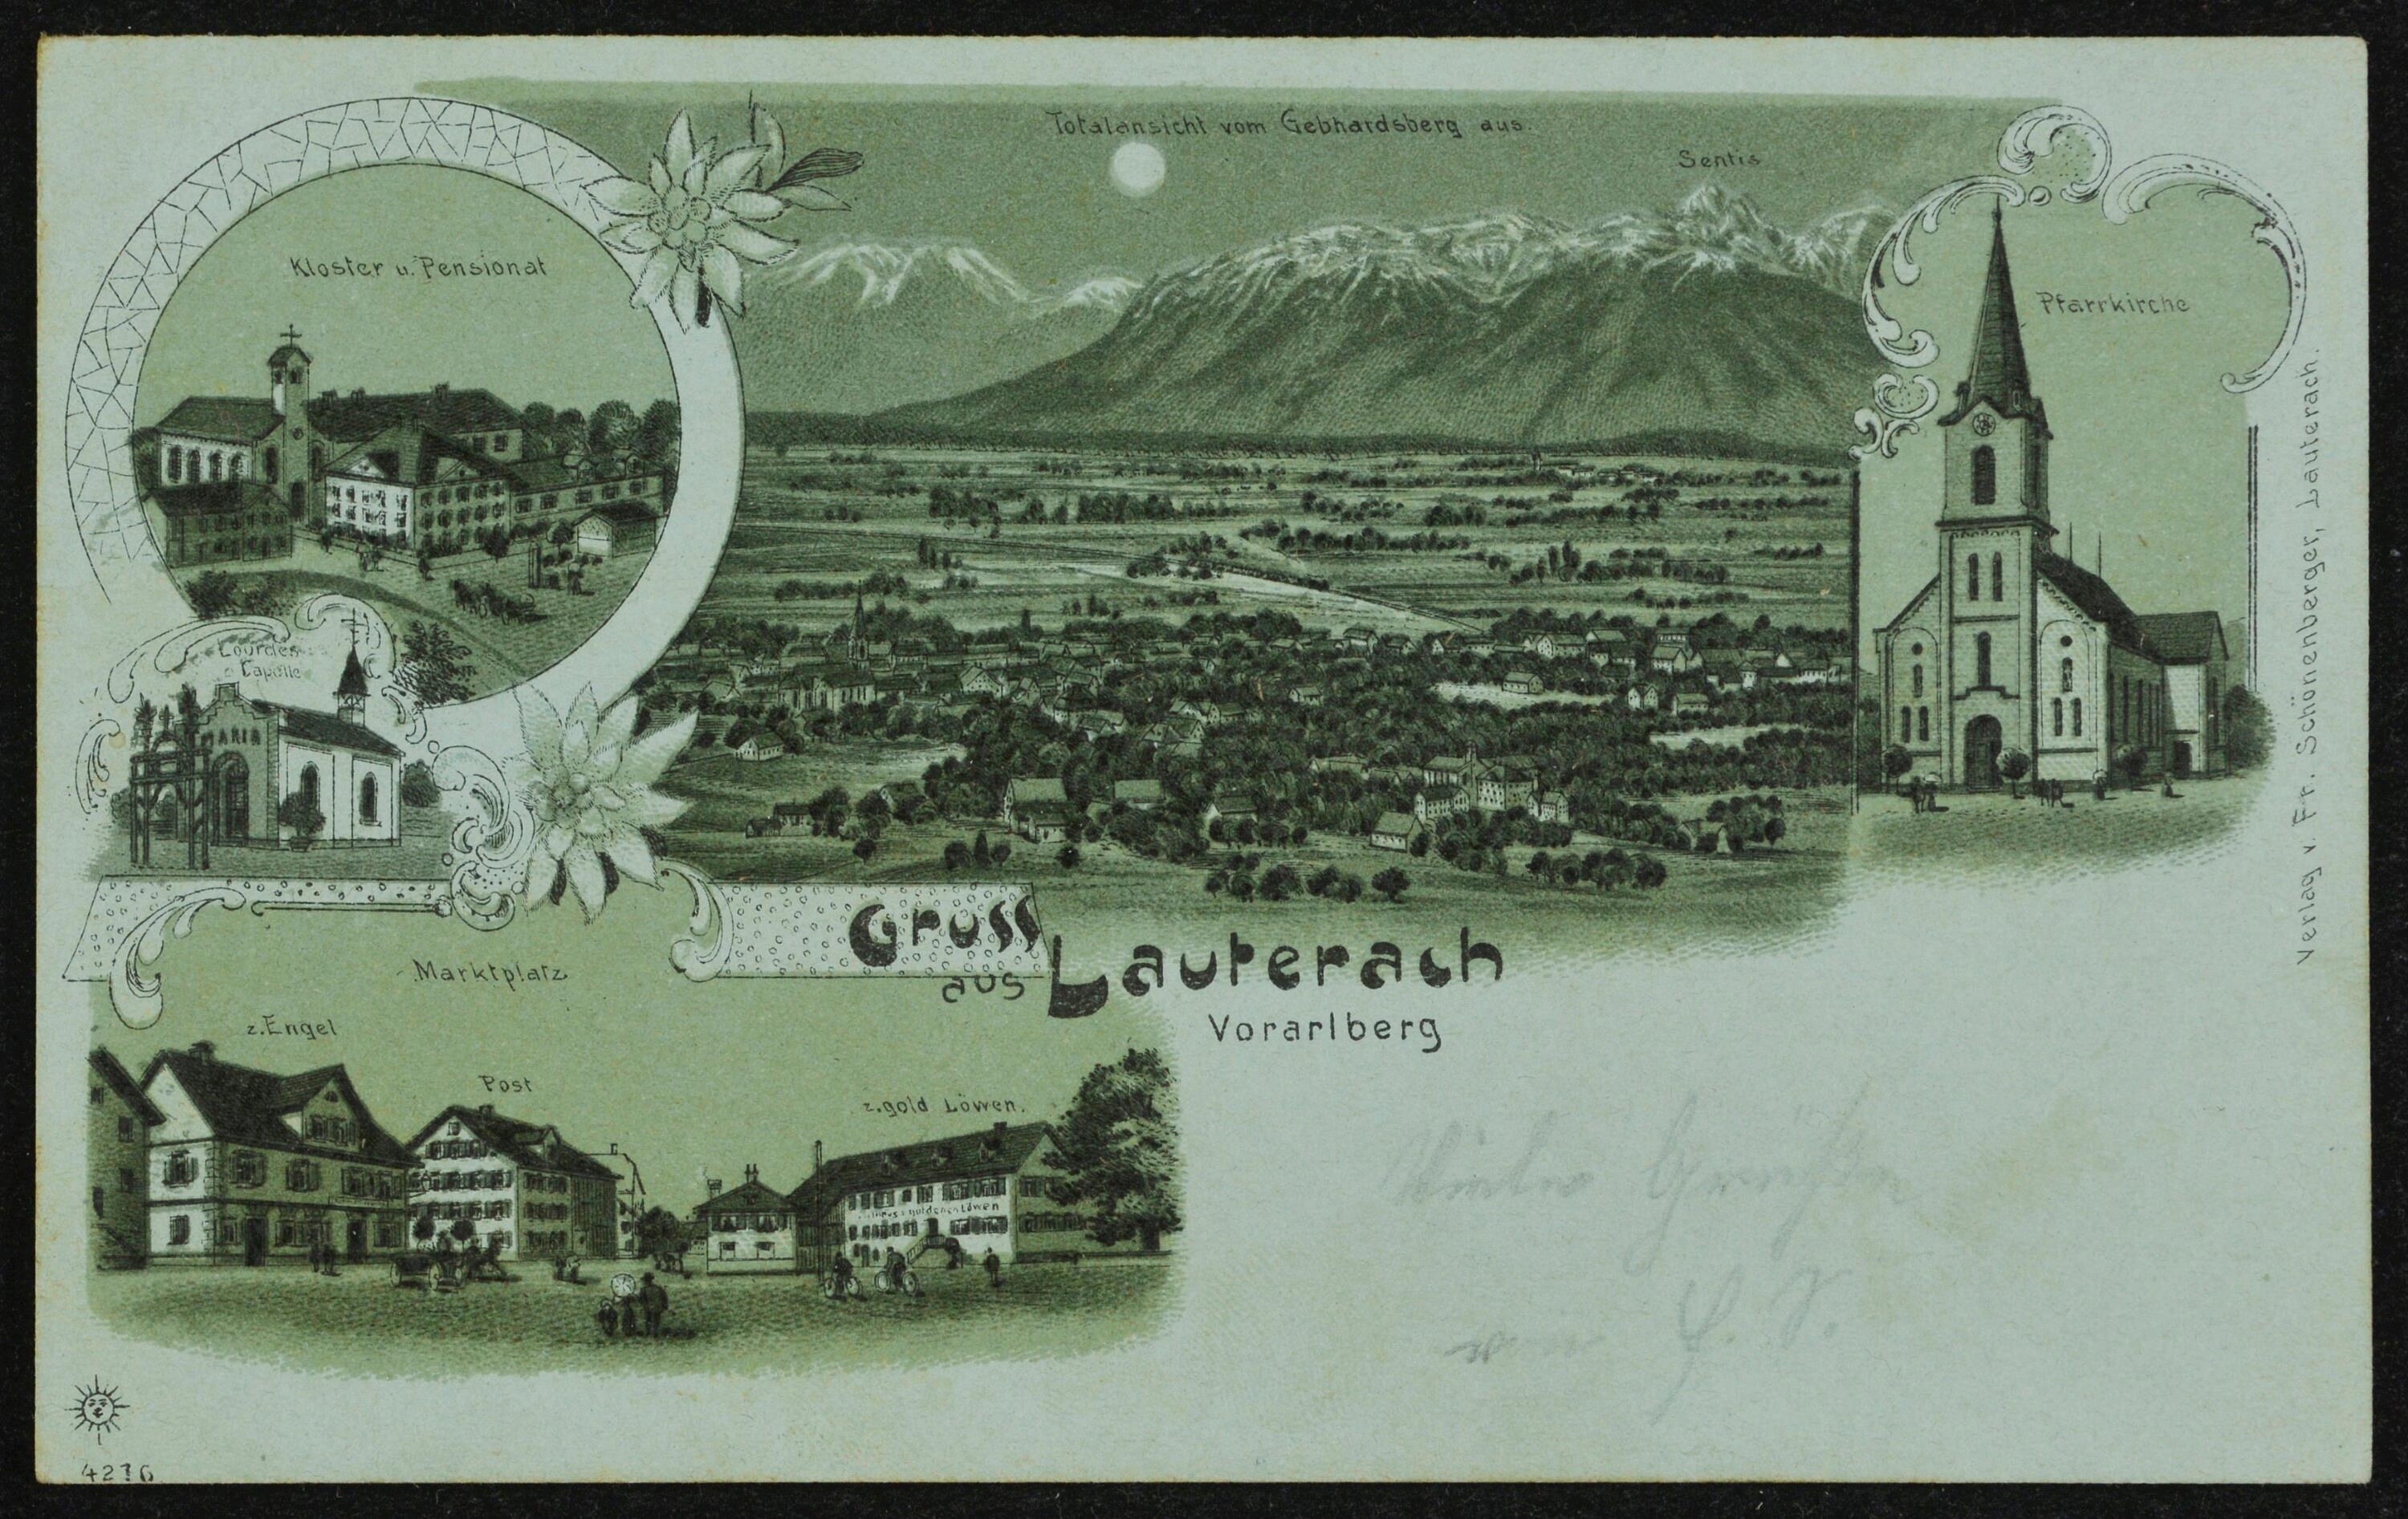 Totalansicht vom Gebhardsberg aus.
Sentis
Kloster u. Pensionat
Pfarrkirche
Lourdes
Capelle
MARIA
Gruss
aus Lauterach
Vorarlberg
Marktplatz
z. Engel
Post
z. gold Löwen.
goldenen Löwen
Verlag v. Fr. Schönenberger, Lauterach.
Grüße
4276